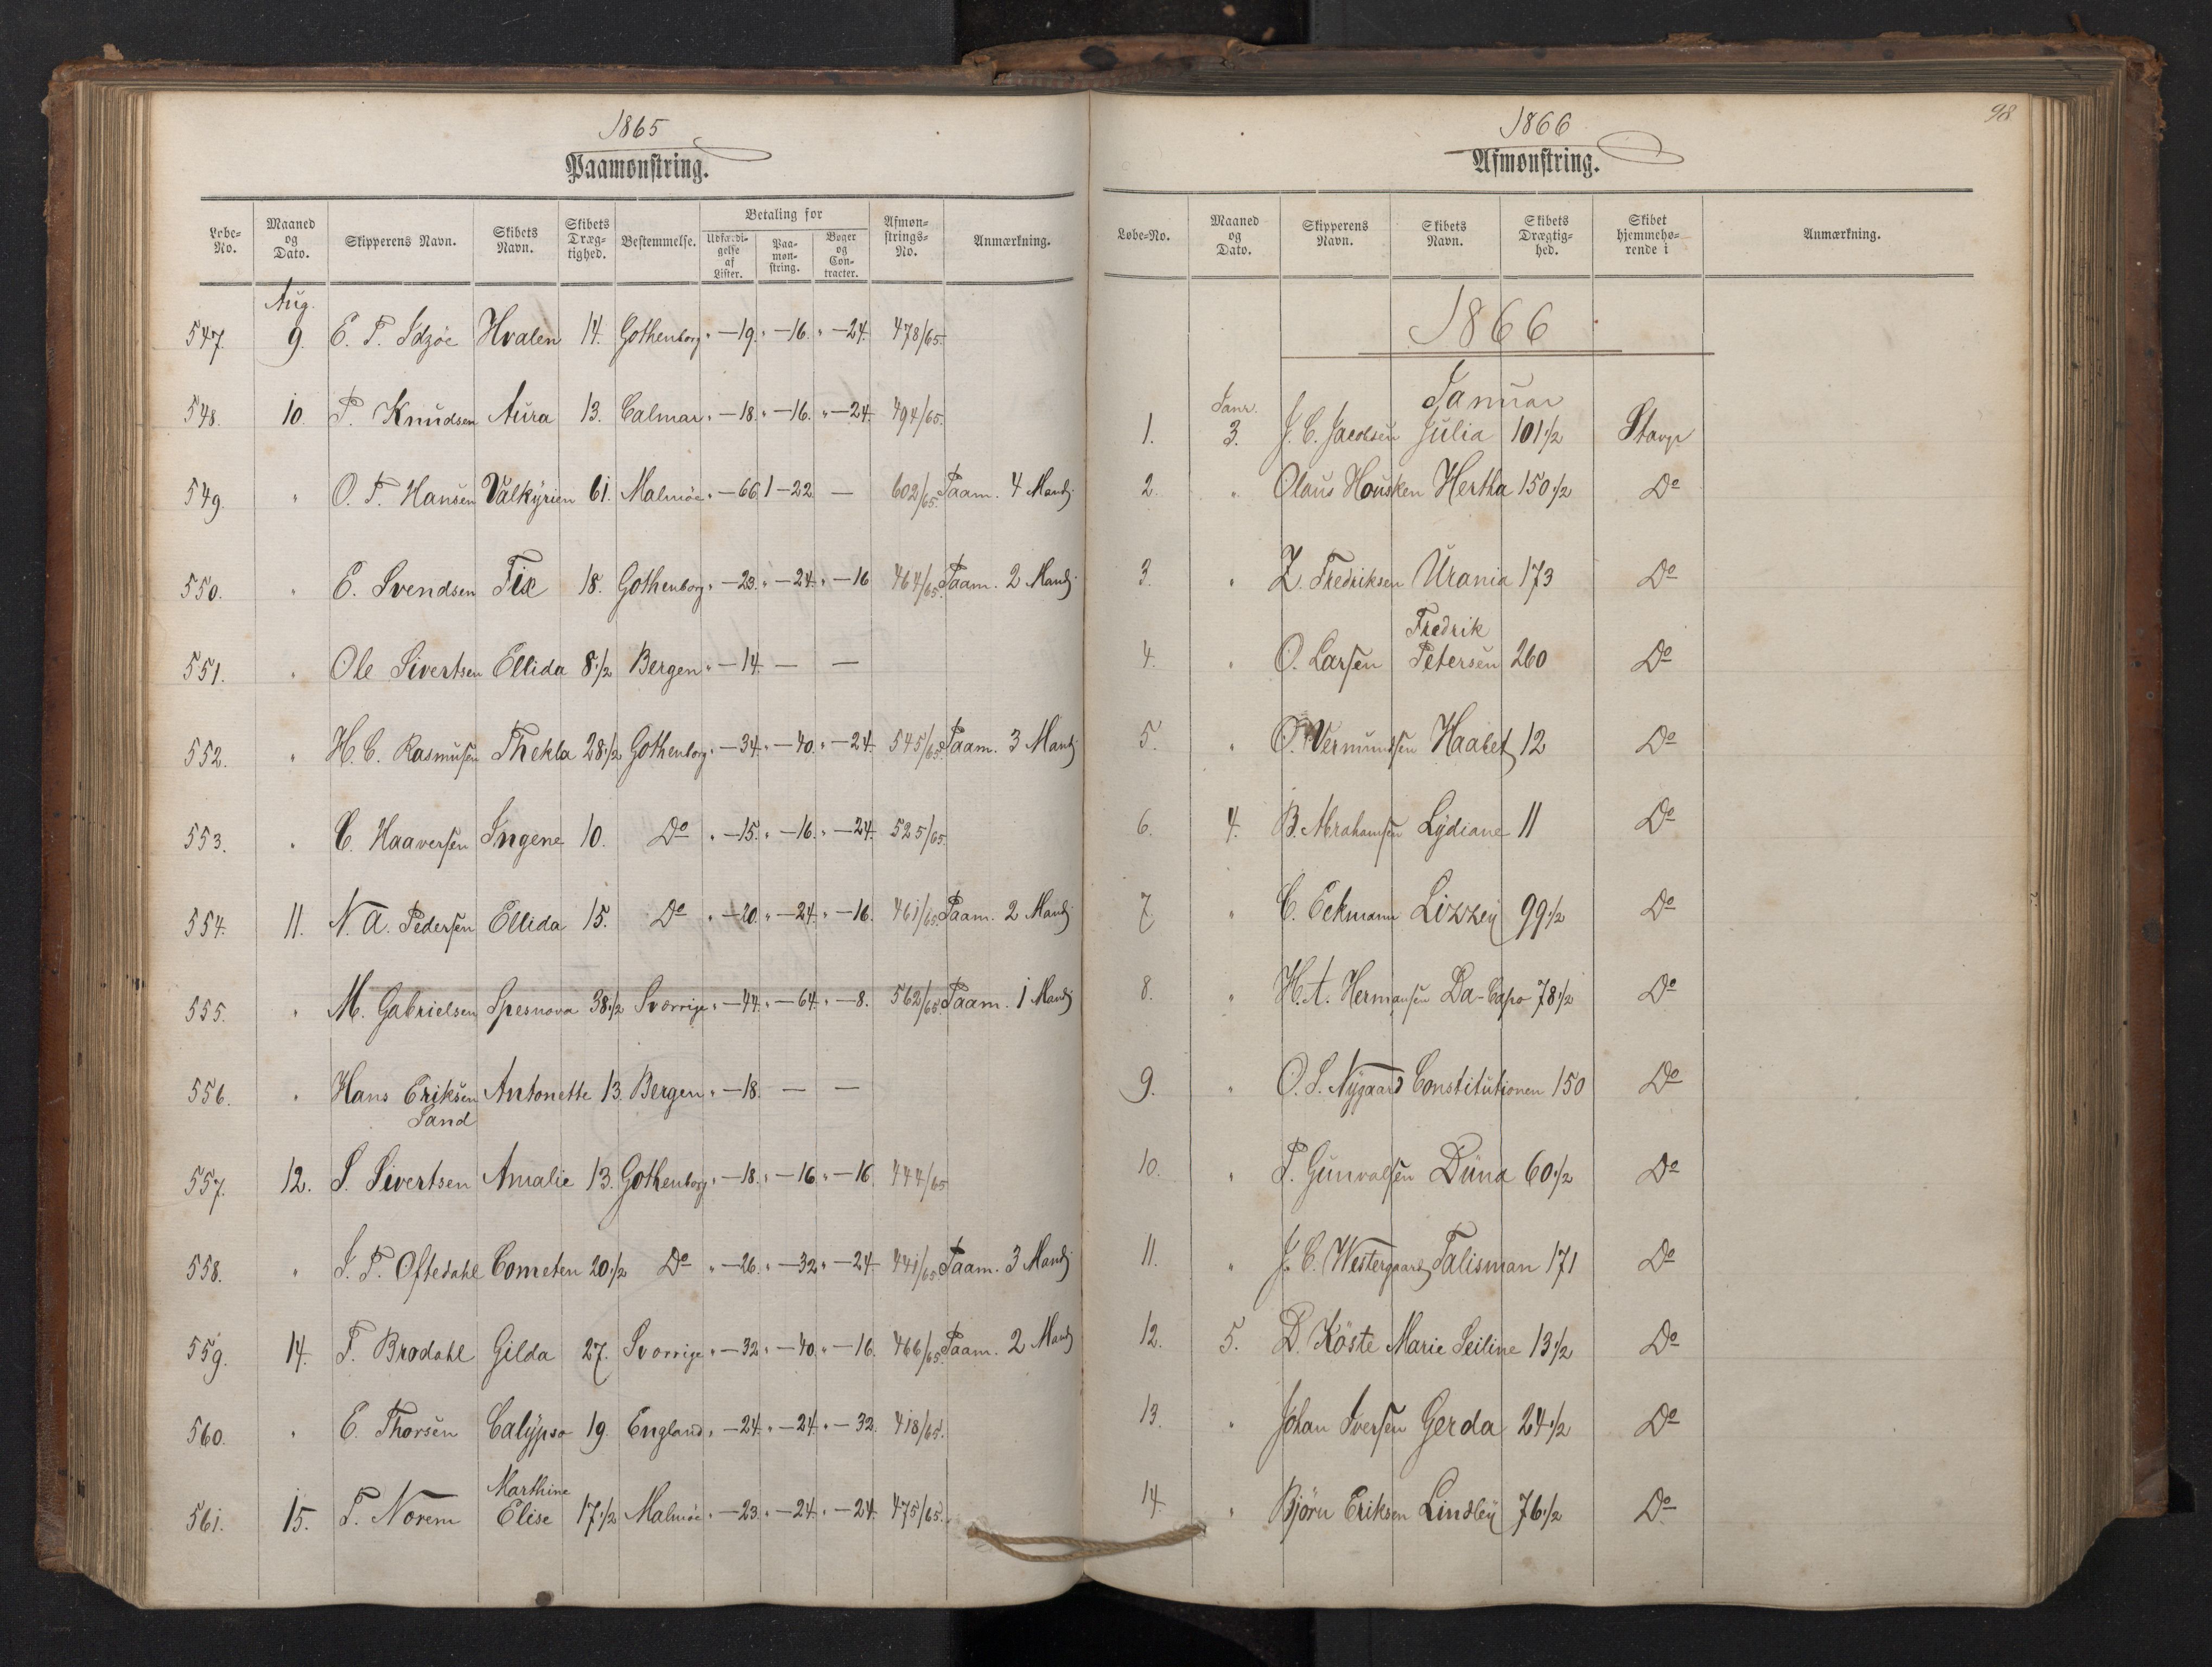 1865
Paamønstring.
Løbe-No. Maaned og Dato. Skipperens Navn. Skibets Navn. Skibets Dræg-tighed. Bestemmelse. Betaling for Udfærdi-gelse af Lister. Paa-møn-string. Bøger og Con-tracter. Afmøn-strings-No. Anmærkning.
Aug.
547. 9. E. T. Idzøe Hvalen 14. Gothenborg " — 19. " — 16. " — 24. 478/65.
548. 10. P. Knudsen Aura 13. Calmar " — 18. " — 16. " — 24. 494/65.
549. " O. T. Hansen Valkyrien 61. Malmöe " — 66 1 — 22 — 602/65. Paam. 4 Mand
550. " E. Svendsen Fix 18. Gothenborg " — 23. " — 24. " — 16 464/65. Paam. 2 Mand
551. " Ole Sivertsen Ellida 8 1/2 Bergen " — 14. — —
552. " H. C. Rasmusen Thekla 28 1/2 Gothenborg " — 34. " — 40. " — 24. 545/65. Paam. 3 Mand
553. " C. Haaversen Ingene 10. Do " — 15. " — 16. " — 24. 525/65.
554. 11. N. A. Pedersen Ellida 15. Do " — 20. " — 24. " — 16. 461/65. Paam. 2 Mand
555. " M. Gabrielsen Spesnova 38 1/2 Sverrige " — 44. " — 64. " — 8. 562/65. Paam. 1 Mand
556. " Hans Eriksen Antonette 13. Bergen " — 18. — —
Sand
557. 12. S. Sivertsen Amalie 13. Gothenborg " — 18. " — 16 " — 16 444/65
558. " J. P. Oftedahl Cometen 20 1/2 Do " — 26. " — 32 " — 24 441/65 Paam. 3 Mand
559. 14. T. Brodahl Gilda 27. Sverrige " — 32 " — 40. " — 16. 466/65. Paam. 2 Mand
560. " E. Thorsen Calypso 19. England " — 24. " — 24. " — 32. 418/65.
Marthine
561. 15. T. Norem Elise 17 1/2 Malmöe " — 23. " — 24. " — 24. 475/65.
98
1866
Afmønstring.
Løbe-No. Maaned og Dato. Skipperens Navn. Skibets Navn. Skibets Drægtig-hed. Skibet hjemmehø-rende i Anmærkning.
1866
Januar
Janr.
1. 3. J. C. Jacobsen Julia 101 1/2 Stavgr
2. " Olaus Housken Hertha 150 1/2 Do
3. " Z. Fredriksen Urania 173 Do
Fredrik
4. " O. Larsen Petersen 260 Do
5. " O. Vermundsen Haabet 12 Do
6. 4. B. Abrahamsen Lydiane 11 Do
7 " C. Eckmann Lizzey 99 1/2 Do
8. " H. A. Hermansen Da-Capo 78 1/2 Do
9. " O. S. Nygaard Constitutionen 150 Do
10. " P. Gunvalsen Düna 60 1/2 Do
11. " J. C. Westergaard Talisman 171 Do
12. 5. D. Köste Marie Seiline 13 1/2 Do
13. " Johan Iversen Gerda 24 1/2 Do
14. " Björn Eriksen Lindley 76 1/2 Do